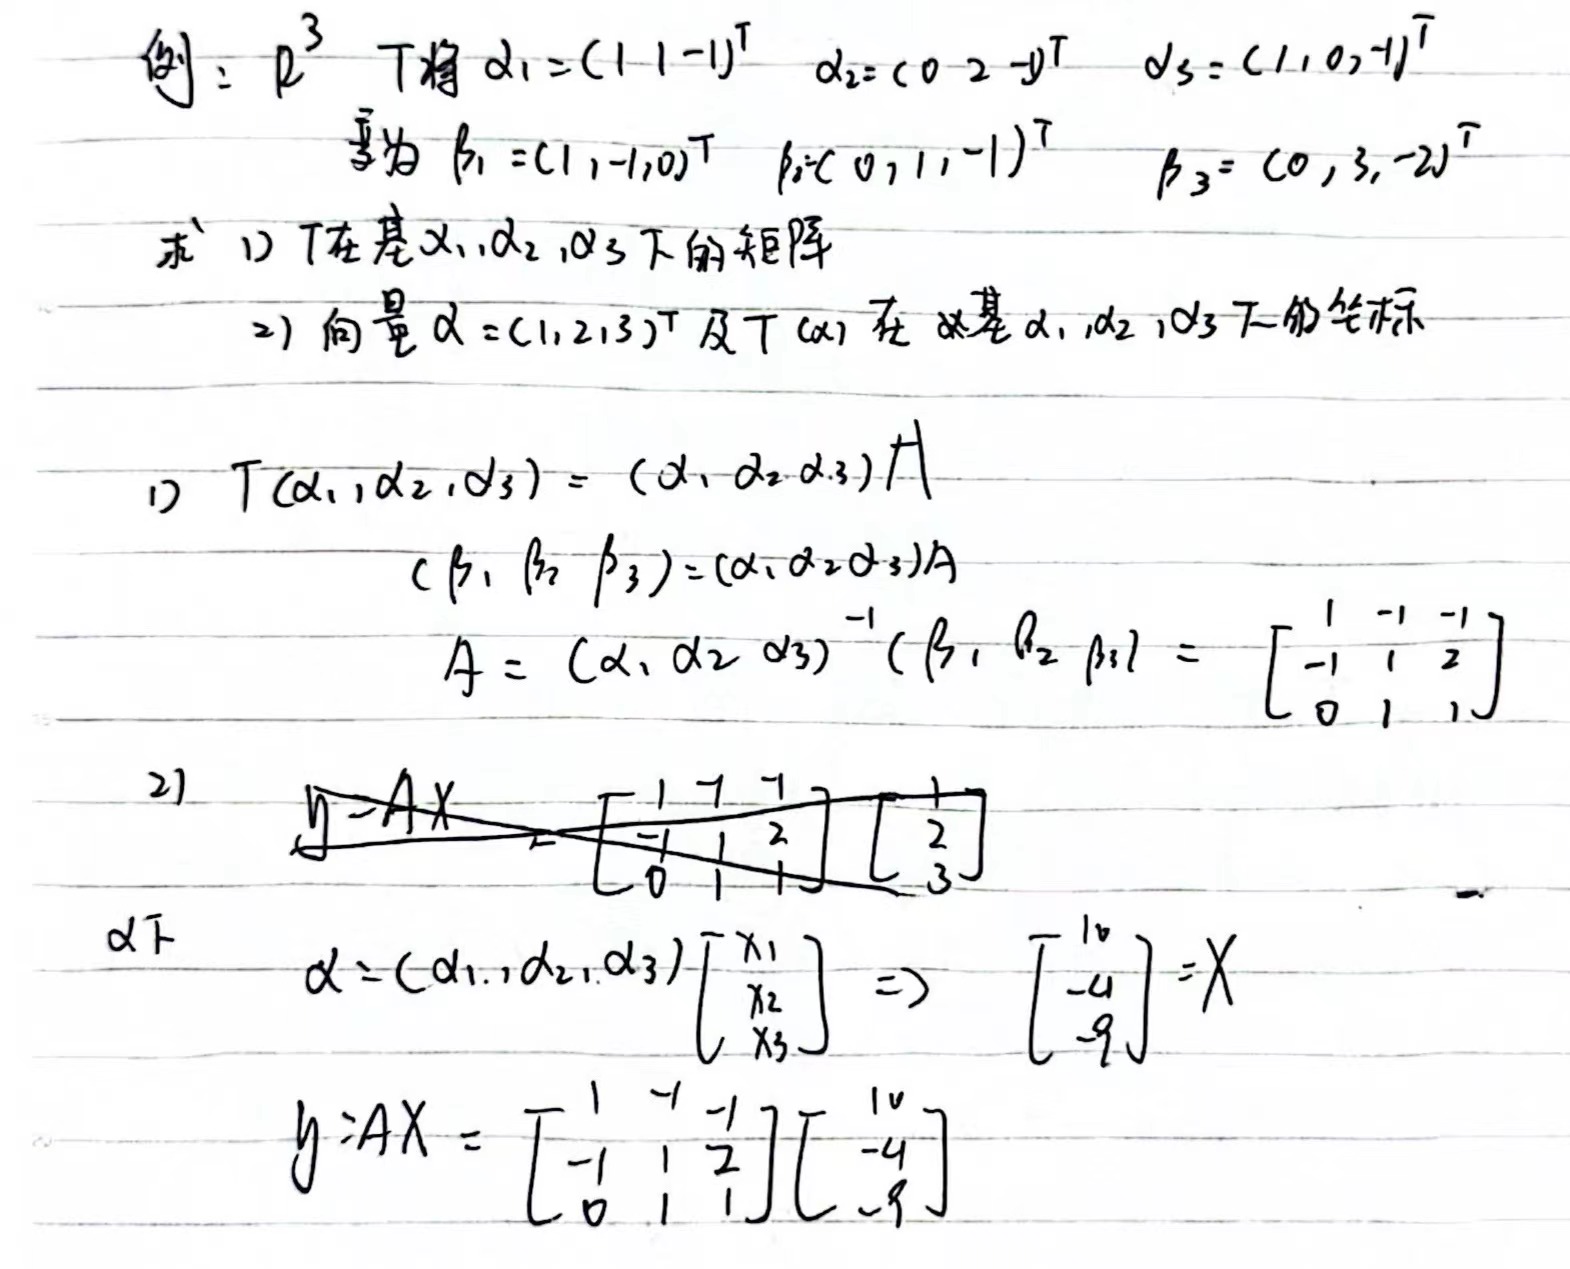 例: R³ T将 α₁=(1 1 -1)ᵀ α₂=(0 2 -1)ᵀ α₃=(1,0,-1)ᵀ
变为 β₁=(1,-1,0)ᵀ β₂=(0,1,-1)ᵀ β₃=(0,3,-2)ᵀ
求 1) T在基α₁,α₂,α₃下的矩阵
2) 向量α=(1,2,3)ᵀ及T(α)在基α₁,α₂,α₃下的坐标
1) T(α₁,α₂,α₃) = (α₁ α₂ α₃)A
(β₁ β₂ β₃)=(α₁ α₂ α₃)A
A = (α₁ α₂ α₃)⁻¹(β₁ β₂ β₃) = [1 -1 -1; -1 1 2; 0 1 1]
2) y=AX = [1 -1 -1; -1 1 2; 0 1 1] [1; 2; 3]
α下 α=(α₁,α₂,α₃)[x1; x2; x3] => [10; -4; -9]=X
y=AX = [1 -1 -1; -1 1 2; 0 1 1][10; -4; -9]